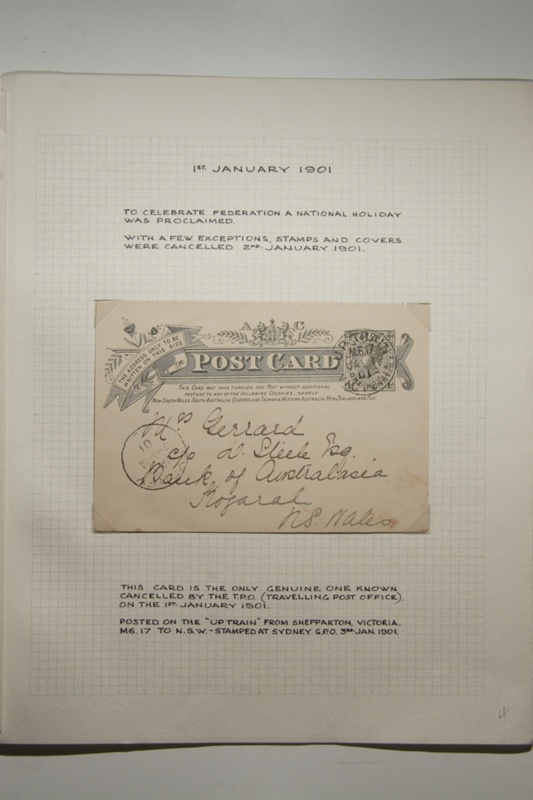 1ST. JANUARY 1901
TO CELEBRATE FEDERATION A NATIONAL HOLIDAY
WAS PROCLAIMED.
WITH A FEW EXCEPTIONS, STAMPS AND COVERS
WERE CANCELLED 2ND. JANUARY 1901.
A C
THE ADDRESS ONLY TO BE
WRITTEN ON THIS SIDE
POST CARD
UP TRAIN
M.G.17
01
THIS CARD MAY PASS THROUGH THE POST WITHOUT ADDITIONAL
POSTAGE TO ANY OF THE FOLLOWING COLONIES, NAMELY
NEW SOUTH WALES, SOUTH AUSTRALIA, QUEENSLAND, TASMANIA, WESTERN AUSTRALIA, NEW ZEALAND AND FIJI.
Gerrard
c/o D. Steele Esq.
Bank of Australasia
Kogarah
N.S. Wales
01
THIS CARD IS THE ONLY GENUINE ONE KNOWN
CANCELLED BY THE T.P.O. (TRAVELLING POST OFFICE)
ON THE 1ST. JANUARY 1901.
POSTED ON THE "UP TRAIN" FROM SHEPPARTON, VICTORIA.
M.G. 17 TO N.S.W. - STAMPED AT SYDNEY G.P.O. 3RD JAN. 1901.
4